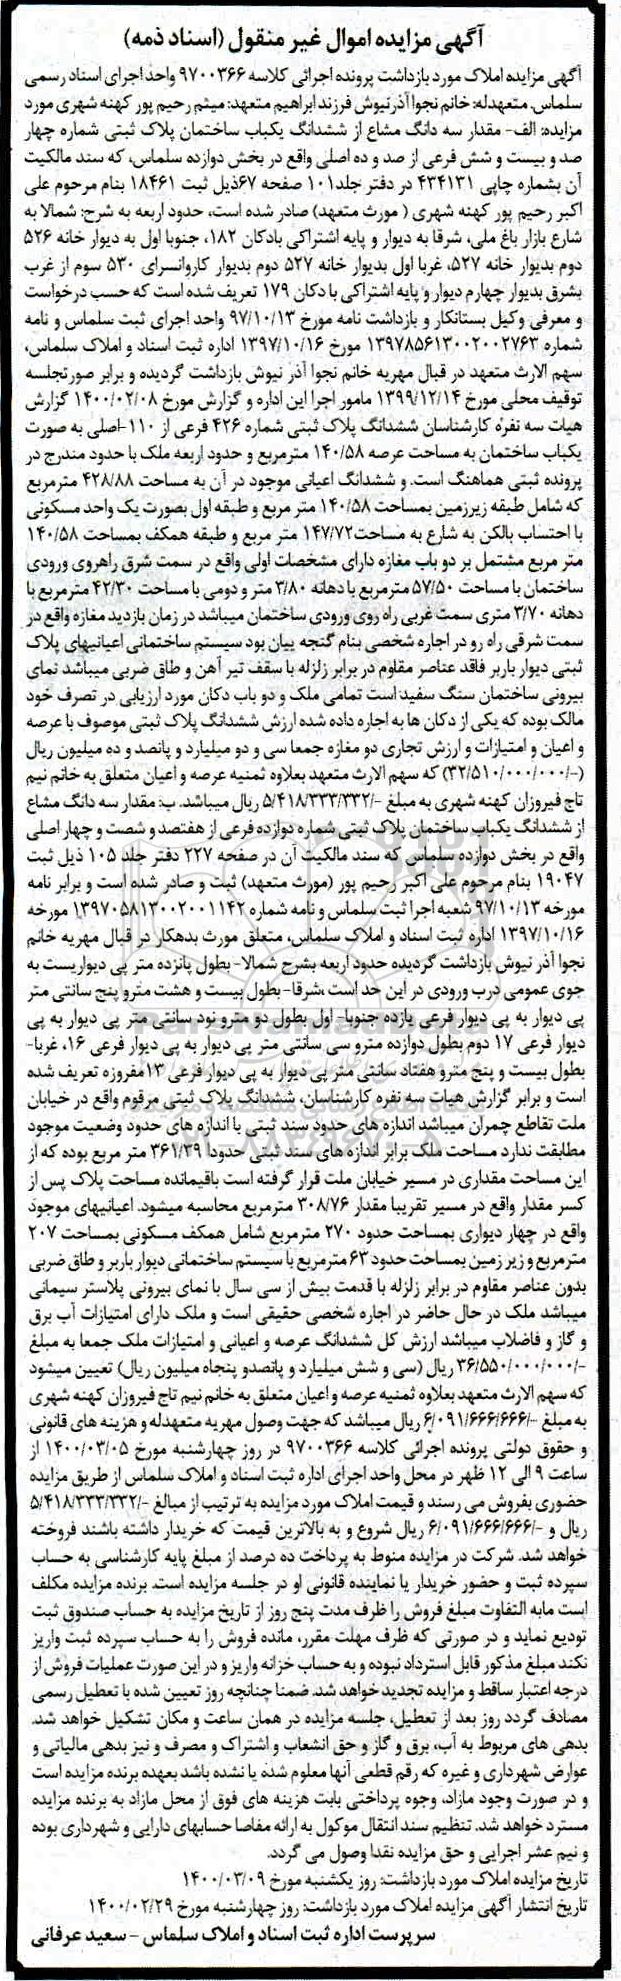 آگهی مزایده اموال غیر منقول (اسناد ذمه)
آگهی مزایده املاک مورد بازداشت پرونده اجرائی کلاسه ۹۷۰۰۳۶۶ واحد اجرای اسناد رسمی
سلماس. متعهدله: خانم نجوا آذرنیوش فرزند ابراهیم متعهد: میثم رحیم پور کهنه شهری مورد
مزایده: الف- مقدار سه دانگ مشاع از ششدانگ یکباب ساختمان پلاک ثبتی شماره چهار
صد و بیست و شش فرعی از صد و ده اصلی واقع در بخش دوازده سلماس، که سند مالکیت
آن بشماره چاپی ۴۳۴۱۳۱ در دفتر جلد۱۰۱ صفحه ۶۷ذیل ثبت ۱۸۴۶۱ بنام مرحوم علی
اکبر رحیم پور کهنه شهری ( مورث متعهد) صادر شده است، حدود اربعه به شرح: شمالا به
شارع بازار باغ ملی، شرقا به دیوار و پایه اشتراکی بادکان ۱۸۲، جنوبا اول به دیوار خانه ۵۲۶
دوم بدیوار خانه ۵۲۷، غربا اول بدیوار خانه ۵۲۷ دوم بدیوار کاروانسرای ۵۳۰ سوم از غرب
بشرق بدیوار چهارم دیوار و پایه اشتراکی با دکان ۱۷۹ تعریف شده است که حسب درخواست
و معرفی وکیل بستانکار و بازداشت نامه مورخ ۹۷/۱۰/۱۳ واحد اجرای ثبت سلماس و نامه
شماره ۱۳۹۷۸۵۶۱۳۰۰۲۰۰۲۷۶۳ مورخ ۱۳۹۷/۱۰/۱۶ اداره ثبت اسناد و املاک سلماس،
سهم الارث متعهد در قبال مهریه خانم نجوا آذر نیوش بازداشت گردیده و برابر صورتجلسه
توقیف محلی مورخ ۱۳۹۹/۱۲/۱۴ مامور اجرا این اداره و گزارش مورخ ۱۴۰۰/۰۲/۰۸ گزارش
هیات سه نفره کارشناسان ششدانگ پلاک ثبتی شماره ۴۲۶ فرعی از ۱۱۰-اصلی به صورت
یکباب ساختمان به مساحت عرصه ۱۴۰/۵۸ مترمربع و حدود اربعه ملک با حدود مندرج در
پرونده ثبتی هماهنگ است. و ششدانگ اعیانی موجود در آن به مساحت ۴۲۸/۸۸ مترمربع
که شامل طبقه زیرزمین بمساحت ۱۴۰/۵۸ متر مربع و طبقه اول بصورت یک واحد مسکونی
با احتساب بالکن به شارع به مساحت۱۴۷/۷۲ متر مربع و طبقه همکف بمساحت ۱۴۰/۵۸
متر مربع مشتمل بر دو باب مغازه دارای مشخصات اولی واقع در سمت شرق راهروی ورودی
ساختمان با مساحت ۵۷/۵۰ مترمربع با دهانه ۳/۸۰ متر و دومی با مساحت ۴۲/۳۰ مترمربع با
دهانه ۳/۷۰ متری سمت غربی راه روی ورودی ساختمان میباشد در زمان بازدید مغازه واقع در
سمت شرقی راه رو در اجاره شخصی بنام گنجه پیان بود سیستم ساختمانی اعیانیهای پلاک
ثبتی دیوار باربر فاقد عناصر مقاوم در برابر زلزله با سقف تیر آهن و طاق ضربی میباشد نمای
بیرونی ساختمان سنگ سفید است تمامی ملک و دو باب دکان مورد ارزیابی در تصرف خود
مالک بوده که یکی از دکان ها به اجاره داده شده ارزش ششدانگ پلاک ثبتی موصوف با عرصه
و اعیان و امتیازات و ارزش تجاری دو مغازه جمعا سی و دو میلیارد و پانصد و ده میلیون ریال
(-/۳۲/۵۱۰/۰۰۰/۰۰۰) که سهم الارث متعهد بعلاوه ثمنیه عرصه و اعیان متعلق به خانم نیم
تاج فیروزان کهنه شهری به مبلغ -/۵/۴۱۸/۳۳۳/۳۳۲ ریال میباشد. ب: مقدار سه دانگ مشاع
از ششدانگ یکباب ساختمان پلاک ثبتی شماره دوازده فرعی از هفتصد و شصت و چهار اصلی
واقع در بخش دوازده سلماس که سند مالکیت آن در صفحه ۲۲۷ دفتر جلد ۱۰۵ ذیل ثبت
۱۹۰۴۷ بنام مرحوم علی اکبر رحیم پور (مورث متعهد) ثبت و صادر شده است و برابر نامه
مورخه ۹۷/۱۰/۱۳ شعبه اجرا ثبت سلماس و نامه شماره ۱۳۹۷۰۵۸۱۳۰۰۲۰۰۱۱۴۲ مورخه
۱۳۹۷/۱۰/۱۶ اداره ثبت اسناد و املاک سلماس، متعلق مورث بدهکار در قبال مهریه خانم
نجوا آذر نیوش بازداشت گردیده حدود اربعه بشرح شمالا- بطول پانزده متر پی دیواریست به
جوی عمومی درب ورودی در این حد است ،شرقا- بطول بیست و هشت مترو پنج سانتی متر
پی دیوار به پی دیوار فرعی یازده جنوبا- اول بطول دو مترو نود سانتی متر پی دیوار به پی
دیوار فرعی ۱۷ دوم بطول دوازده مترو سی سانتی متر پی دیوار به پی دیوار فرعی ۱۶، غربا-
بطول بیست و پنج مترو هفتاد سانتی متر پی دیوار به پی دیوار فرعی ۱۳مفروزه تعریف شده
است و برابر گزارش هیات سه نفره کارشناسان، ششدانگ پلاک ثبتی مرقوم واقع در خیابان
ملت تقاطع چمران میباشد اندازه های حدود سند ثبتی با اندازه های حدود وضعیت موجود
مطابقت ندارد مساحت ملک برابر اندازه های سند ثبتی حدودا ۳۶۱/۳۹ متر مربع بوده که از
این مساحت مقداری در مسیر خیابان ملت قرار گرفته است باقیمانده مساحت پلاک پس از
کسر مقدار واقع در مسیر تقریبا مقدار ۳۰۸/۷۶ مترمربع محاسبه میشود. اعیانیهای موجود
واقع در چهار دیواری بمساحت حدود ۲۷۰ مترمربع شامل همکف مسکونی بمساحت ۲۰۷
مترمربع و زیر زمین بمساحت حدود ۶۳ مترمربع با سیستم ساختمانی دیوار باربر و طاق ضربی
بدون عناصر مقاوم در برابر زلزله با قدمت بیش از سی سال با نمای بیرونی پلاستر سیمانی
میباشد ملک در حال حاضر در اجاره شخصی حقیقی است و ملک دارای امتیازات آب برق
و گاز و فاضلاب میباشد ارزش کل ششدانگ عرصه و اعیانی و امتیازات ملک جمعا به مبلغ
-/۳۶/۵۵۰/۰۰۰/۰۰۰ ریال (سی و شش میلیارد و پانصدو پنجاه میلیون ریال) تعیین میشود
که سهم الارث متعهد بعلاوه ثمنیه عرصه و اعیان متعلق به خانم نیم تاج فیروزان کهنه شهری
به مبلغ -/۶/۰۹۱/۶۶۶/۶۶۶ ریال میباشد که جهت وصول مهریه متعهدله و هزینه های قانونی
و حقوق دولتی پرونده اجرائی کلاسه ۹۷۰۰۳۶۶ در روز چهارشنبه مورخ ۱۴۰۰/۰۳/۰۵ از
ساعت ۹ الی ۱۲ ظهر در محل واحد اجرای اداره ثبت اسناد و املاک سلماس از طریق مزایده
حضوری بفروش می رسند و قیمت املاک مورد مزایده به ترتیب از مبالغ -/۵/۴۱۸/۳۳۳/۳۳۲
ریال و -/۶/۰۹۱/۶۶۶/۶۶۶ ریال شروع و به بالاترین قیمت که خریدار داشته باشند فروخته
خواهد شد. شرکت در مزایده منوط به پرداخت ده درصد از مبلغ پایه کارشناسی به حساب
سپرده ثبت و حضور خریدار یا نماینده قانونی او در جلسه مزایده است. برنده مزایده مکلف
است مابه التفاوت مبلغ فروش را ظرف مدت پنج روز از تاریخ مزایده به حساب صندوق ثبت
تودیع نماید و در صورتی که ظرف مهلت مقرر، مانده فروش را به حساب سپرده ثبت واریز
نکند مبلغ مذکور قابل استرداد نبوده و به حساب خزانه واریز و در این صورت عملیات فروش از
درجه اعتبار ساقط و مزایده تجدید خواهد شد. ضمنا چنانچه روز تعیین شده با تعطیل رسمی
مصادف گردد روز بعد از تعطیل، جلسه مزایده در همان ساعت و مکان تشکیل خواهد شد.
بدهی های مربوط به آب، برق و گاز و حق انشعاب و اشتراک و مصرف و نیز بدهی مالیاتی و
عوارض شهرداری و غیره که رقم قطعی آنها معلوم شده یا نشده باشد بعهده برنده مزایده است
و در صورت وجود مازاد، وجوه پرداختی بابت هزینه های فوق از محل مازاد به برنده مزایده
مسترد خواهد شد. تنظیم سند انتقال موکول به ارائه مفاصا حسابهای دارایی و شهرداری بوده
و نیم عشر اجرایی و حق مزایده نقدا وصول می گردد.
تاریخ مزایده املاک مورد بازداشت: روز یکشنبه مورخ ۱۴۰۰/۰۳/۰۹
تاریخ انتشار آگهی مزایده املاک مورد بازداشت: روز چهارشنبه مورخ ۱۴۰۰/۰۲/۲۹
سرپرست اداره ثبت اسناد و املاک سلماس - سعید عرفانی